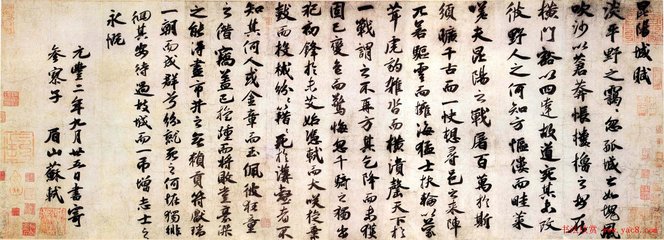 昆陽城賦
淡平野之靄靄忽孤城之如塊風
吹沙以蒼莽悵樓櫓之安在
橫門豁以四達故道宛其未改
彼野人之何知方傴僂而畦菜
嗟夫昆陽之戰屠百萬於斯
須曠千古而一快想尋邑之來陣
兀若驅雲而擁海猛士扶輪以蒙
茸虎豹雜沓而橫潰罄天下於
一戰謂之不再方其乞降而未獲
固已變色而驚悔忽千騎之獨出
犯初鋒於未艾始憑軾而大笑旋棄
鼓而投械紛紛籍籍死於溝壑者不
知其何人或金章而玉佩彼狂童
之僭竊蓋已旋踵而將敗豈豪傑
之能得盡市井之無賴貢符獻瑞
一朝而成群兮紛就死之何怪獨徘
徊其安待過故城而一弔增志士之
永慨
元豐二年九月廿五日書寄
參寥子 眉山蘇軾